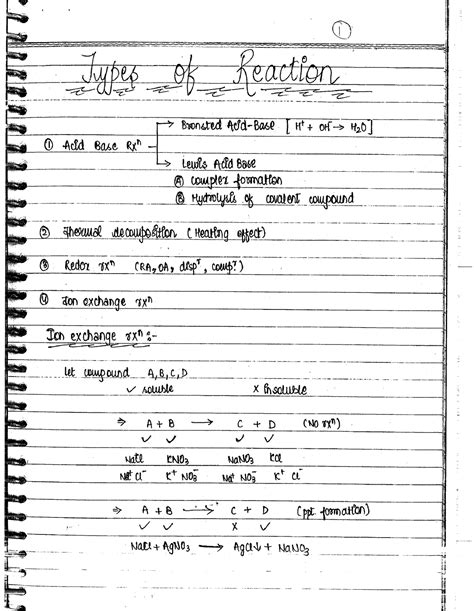 1
Types of Reaction
① Acid Base Rxⁿ
→ Bronsted Acid-Base [H⁺ + OH⁻ → H₂O]
→ Lewis Acid Base
Ⓐ complex formation
Ⓑ Hydrolysis of covalent compound
② Thermal decomposition (Heating effect)
③ Redox rxⁿ (RA, OA, dispᵗ, compᵗ)
④ Ion exchange rxⁿ
Ion exchange rxⁿ :-
let compound A, B, C, D
✓ soluble × insoluble
⇒ A + B → C + D (No rxⁿ)
✓ ✓ ✓ ✓
NaCl KNO₃ NaNO₃ KCl
Na⁺ Cl⁻ K⁺ NO₃⁻ Na⁺ NO₃⁻ K⁺ Cl⁻
⇒ A + B → C + D (ppt. formation)
✓ ✓ × ✓
NaCl + AgNO₃ → AgCl↓ + NaNO₃